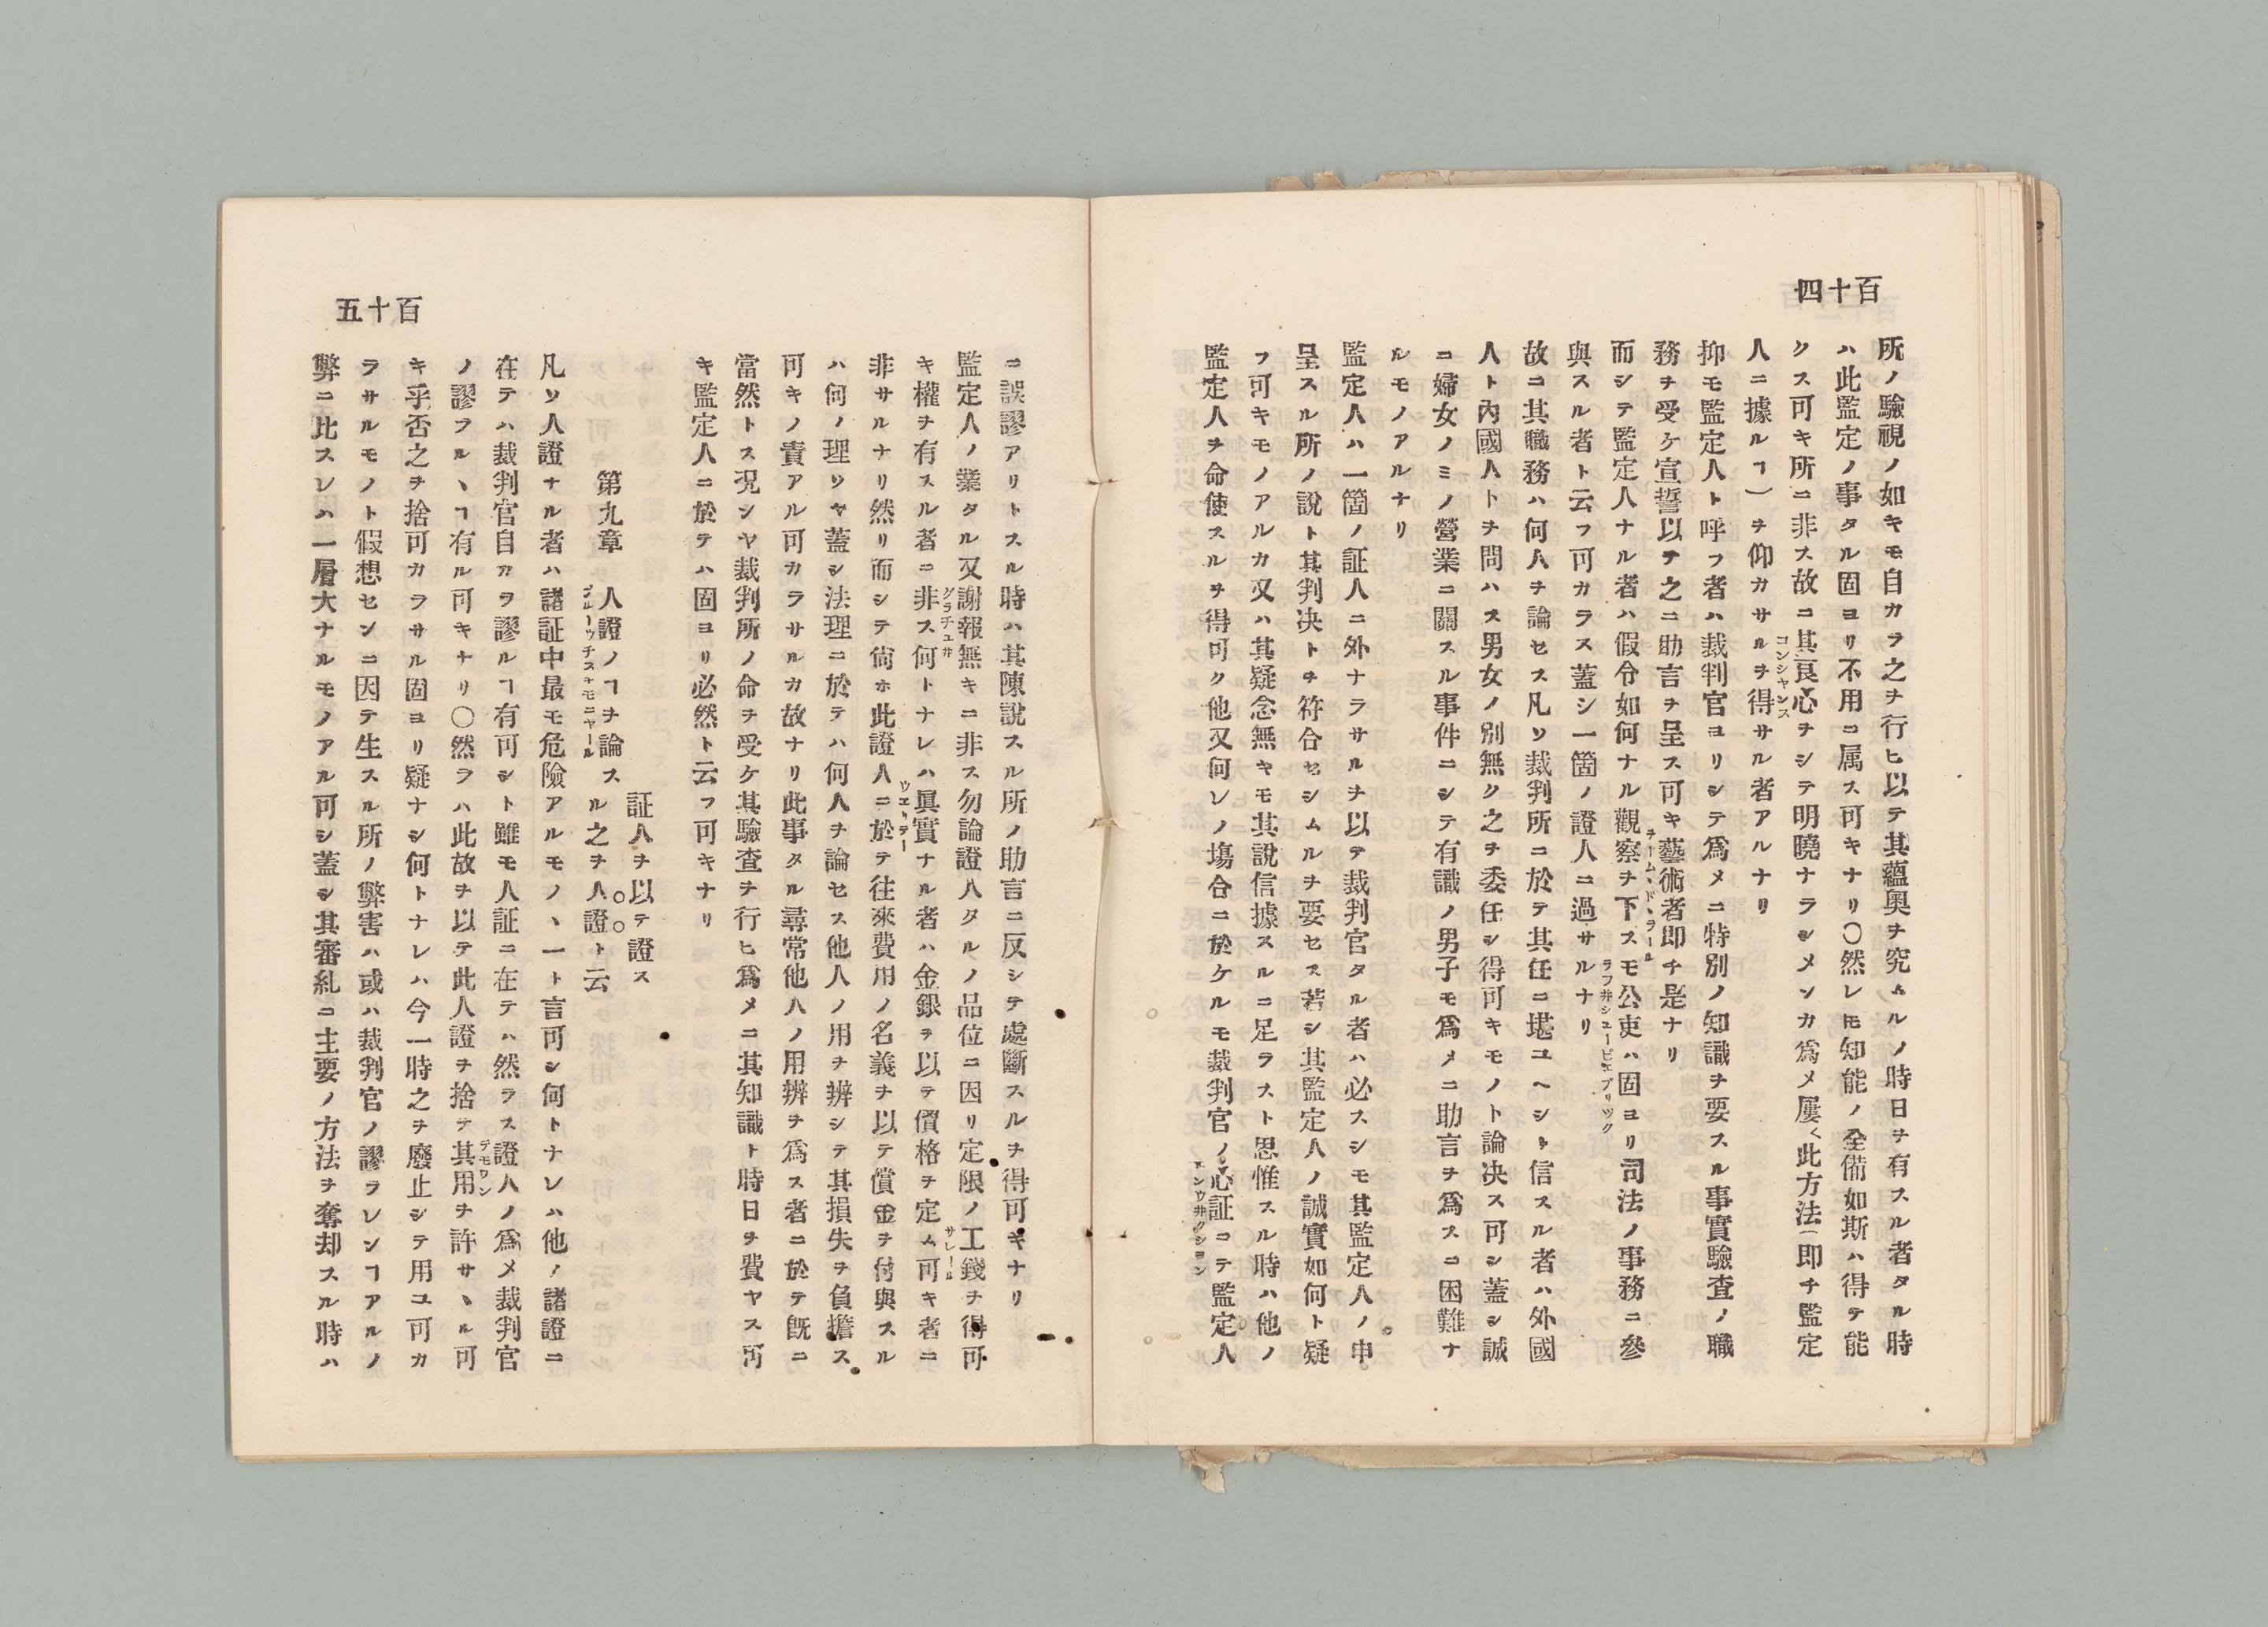 百十四
所ノ驗視ノ如キモ自カラ之ヲ行ヒ以テ其蘊奥ヲ究ムルノ時日ヲ有スル者タル時
ハ此監定ノ事タル固ヨリ不用ニ属ス可キナリ〇然レ𪜈知能ノ全備如斯ハ得テ能
クス可キ所ニ非ス故ニ其良心ヲシテ明曉ナラシメンカ爲メ屢〱此方法(即チ監定
コンシヤンス
人ニ據ルヿ)ヲ仰カサルヲ得サル者アルナリ
抑モ監定人ト呼フ者ハ裁判官ヨリシテ爲メニ特別ノ知識ヲ要スル事實驗査ノ職
務ヲ受ケ宣誓以テ之ニ助言ヲ呈ス可キ藝術者即チ是ナリ
ヲーム、ド、ラール
而シテ監定人ナル者ハ假令如何ナル觀察ヲ下スモ公吏ハ固ヨリ司法ノ事務ニ參
ヲフ井シユーピユブリツク
與スル者ト云フ可カラス蓋シ一箇ノ證人ニ過サルナリ
故ニ其職務ハ何人ヲ論セス凡ソ裁判所ニ於テ其任ニ堪ユヘシト信スル者ハ外國
人ト內國人トヲ問ハス男女ノ別無ク之ヲ委任シ得可キモノト論决ス可シ蓋シ誠
ニ婦女ノミノ營業ニ關スル事件ニシテ有識ノ男子モ爲メニ助言ヲ爲スニ困難ナ
ルモノアルナリ
監定人ハ一箇ノ証人ニ外ナラサルヲ以テ裁判官タル者ハ必スシモ其監定人ノ申
呈スル所ノ說ト其判决トヲ符合セシムルヲ要セス若シ其監定人ノ誠實如何ト疑
フ可キモノアルカ又ハ其疑念無キモ其說信據スルニ足ラスト思惟スル時ハ他ノ
監定人ヲ命使スルヲ得可ク他又何レノ塲合ニ於ケルモ裁判官ノ心証ニテ監定人
コンウ井クシヨン
百十五
ニ誤謬アリトスル時ハ其陳說スル所ノ助言ニ反シテ處斷スルヲ得可キナリ
監定人ノ業タル又謝報無キニ非ス勿論證人タルノ品位ニ因リ定限ノ工錢ヲ得可
グラチユ井
サレール
キ權ヲ有スル者ニ非ス何トナレハ眞實ナル者ハ金銀ヲ以テ價格ヲ定ム可キ者ニ
ウエリテー
非サルナリ然リ而シテ尙ホ此證人ニ於テ往來費用ノ名義ヲ以テ償金ヲ付與スル
ハ何ノ理ソヤ蓋シ法理ニ於テハ何人ヲ論セス他人ノ用ヲ辨シテ其損失ヲ負擔ス
可キノ責アル可カラサルカ故ナリ此事タル尋常他人ノ用辨ヲ爲ス者ニ於テ既ニ
當然トス况ンヤ裁判所ノ命ヲ受ケ其驗査ヲ行ヒ爲メニ其知識ト時日ヲ費ヤス可
キ監定人ニ於テハ固ヨリ必然ト云フ可キナリ
第九章　人證ノヿヲ論ス
プルーウチスチモニヤール
証人ヲ以テ證ス
ル之ヲ人證ト云
凡ソ人證ナル者ハ諸証中最モ危險アルモノヽ一ト言可シ何トナレハ他ノ諸證ニ
在テハ裁判官自カヲ謬ルヿ有可シト雖モ人証ニ在テハ然ラス證人ノ爲メ裁判官
ノ謬ラルヽヿ有ル可キナリ〇然ラハ此故ヲ以テ此人證ヲ捨テ其用ヲ許サヽル可
デモワン
キ乎否之ヲ捨可カラサル固ヨリ疑ナシ何トナレハ今一時之ヲ廢止シテ用ユ可カ
ラサルモノト假想センニ因テ生スル所ノ弊害ハ或ハ裁判官ノ謬ラレンヿアルノ
弊ニ比スレハ一層大ナルモノアル可シ蓋シ其審糺ニ主要ノ方法ヲ奪却スル時ハ